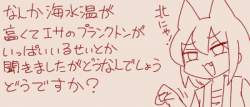 なんか海水温が
高くてエサのプランクトンが
いっぱいいるせいとか
聞きましたがどうなんでしょう
どうですか?
北にゃ!